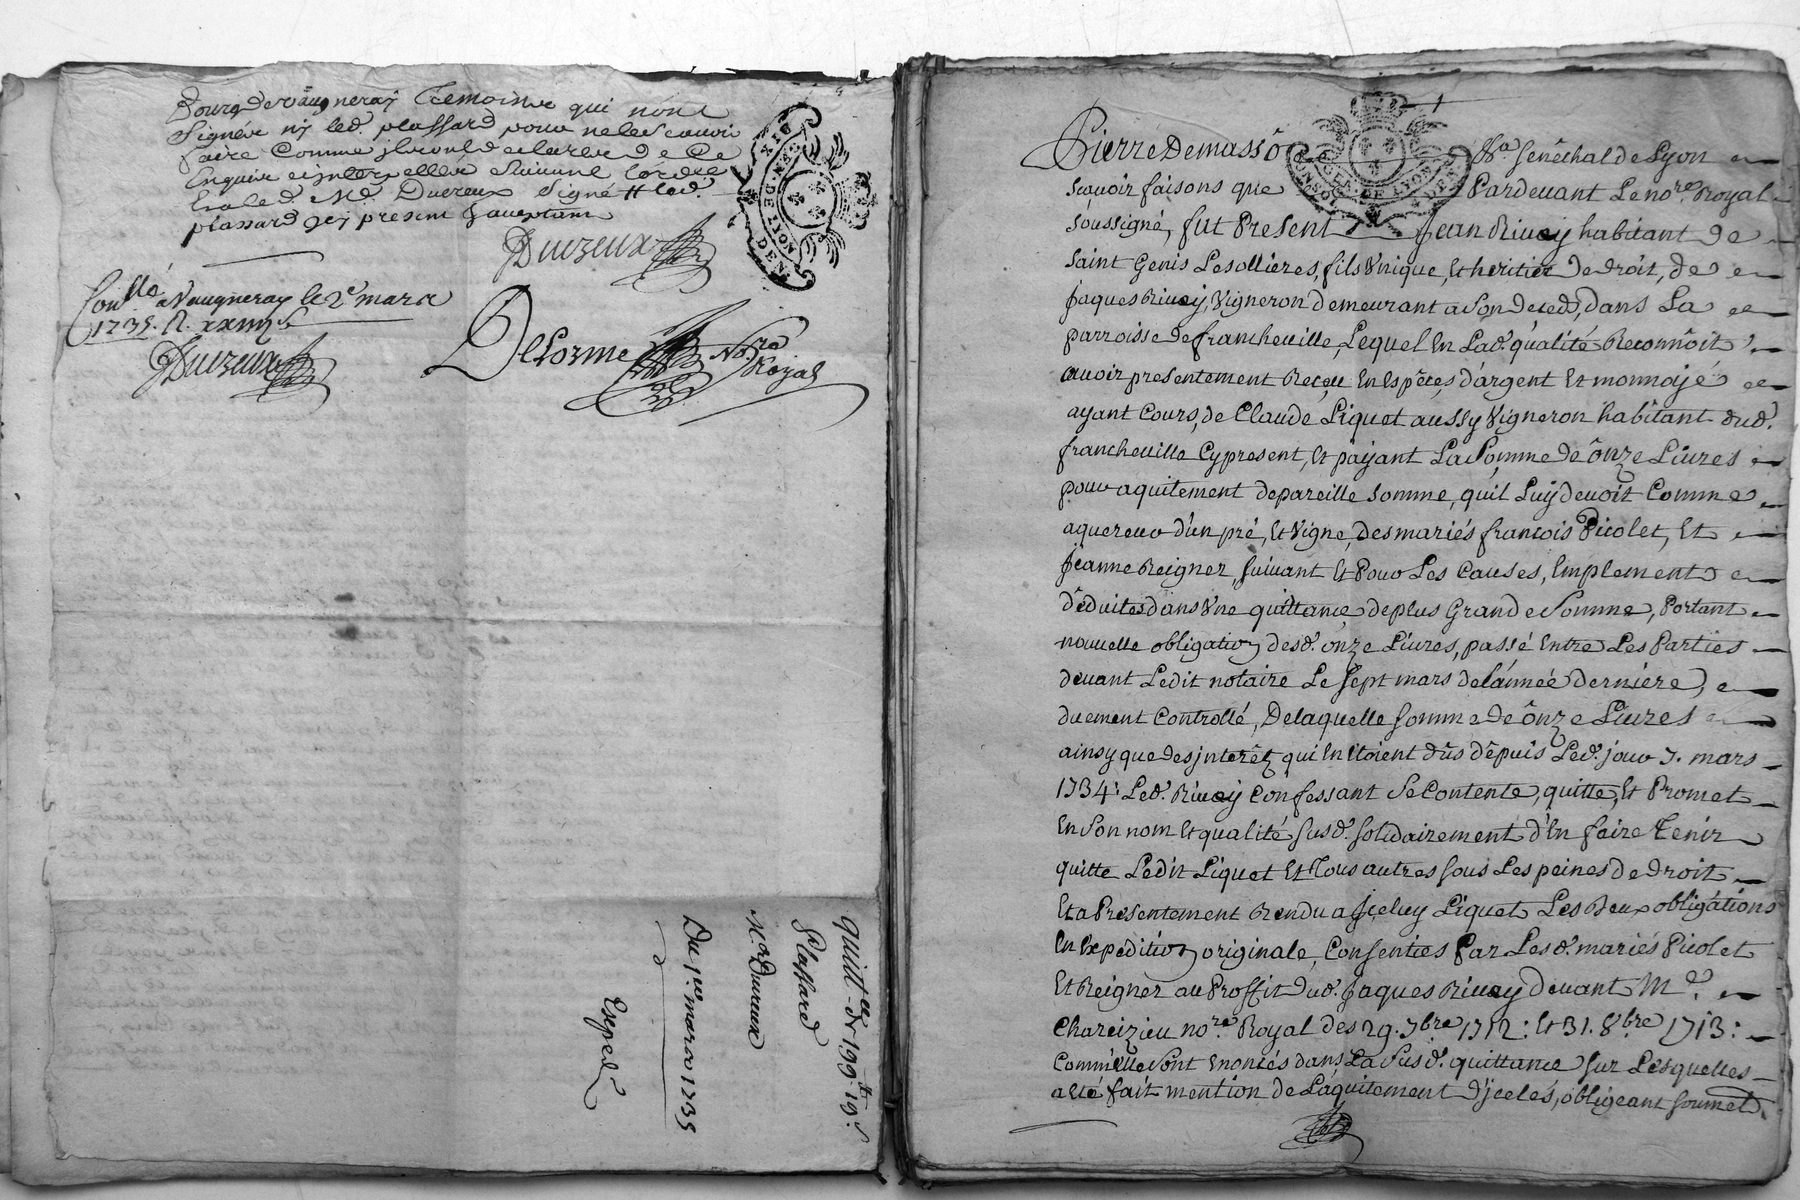 Bourg de Vaugneray Temoins qui n'ont
signéz ny led. plassard pour ne le sçavoir
faire comme ils ont declarer de ce
Enquis et interpellér suivant lordce
Led. Mr. Duvreux signé # led.
plassard icy present & aceptant
Duvreux
Conllé a Vaugneray le 2e mars
1735. R. xxiiij s
Duvreux
Delorme Nore
Royal
GEN. DE LYON
SIX DEN.
quittce de 199 lt 19 s
Plassard
Mr Duvreux
Du 1er mars 1735
Expedé
Pierre Demasso Sr Senêchal de Lyon
GEN. DE LYON
scavoir faisons que Pardevant Le nore Royal
soussigné, fut Present Jean Rivoy habitant de
Saint Genis Lesollieres, fils Vnique, Et heritier de droit, de
Jaques Rivoy, Vigneron demeurant a son deced, dans La
parroisse de francheville, Lequel En Lad. qualité Reconnoit
avoir presentement Receu En Espêces d'argent Et monnoje
ayant Cours, de Claude Liquet aussy Vigneron habitant dud.
francheville Cypresent, Et payant La Somme de ônze Livres
pour aquitement depareille somme, quil Luy devoit Comme
aquereur d'un pré, Et Vigne, des mariés francois Picolet, Et
Jeanne Reignez, suivant Et Pour Les Causes, Emplement
dêduites dans Vne quittance de plus Grande Somme, Portant
nouvelle obligation desd. onze Livres, passé Entre Les Parties
devant Ledit notaire Le sept mars de l'année derniére,
duement Controllé, De laquelle somme de ônze Livres
ainsy que des jnterêtz qui En Etoient dûs dêpuis Led. jour 7. mars
1734: Led. Rivoy Confessant Se Contente, quitte, Et Promet
En Son nom Et qualité susd. solidairement d'En faire Tenir
quitte Ledit Liquet Et Tous autres sous Les peines de droit
Et a Presentement Rendu a Jceluy Liquet Les Deux obligations
En Expedition originale, Consenties Par Lesd. mariés Picolet
Et Reignez au Proffit dud. Jaques Rivoy devant Me.
Chareizieu nore Royal des 29. 7bre 1712: Et 31. 8bre 1713:
Comm'elle sont Enoncés dans La Susd. quittance sur Lesquelles
a Eté fait mention de L'aquitement d'jceles, obligeant soumet.